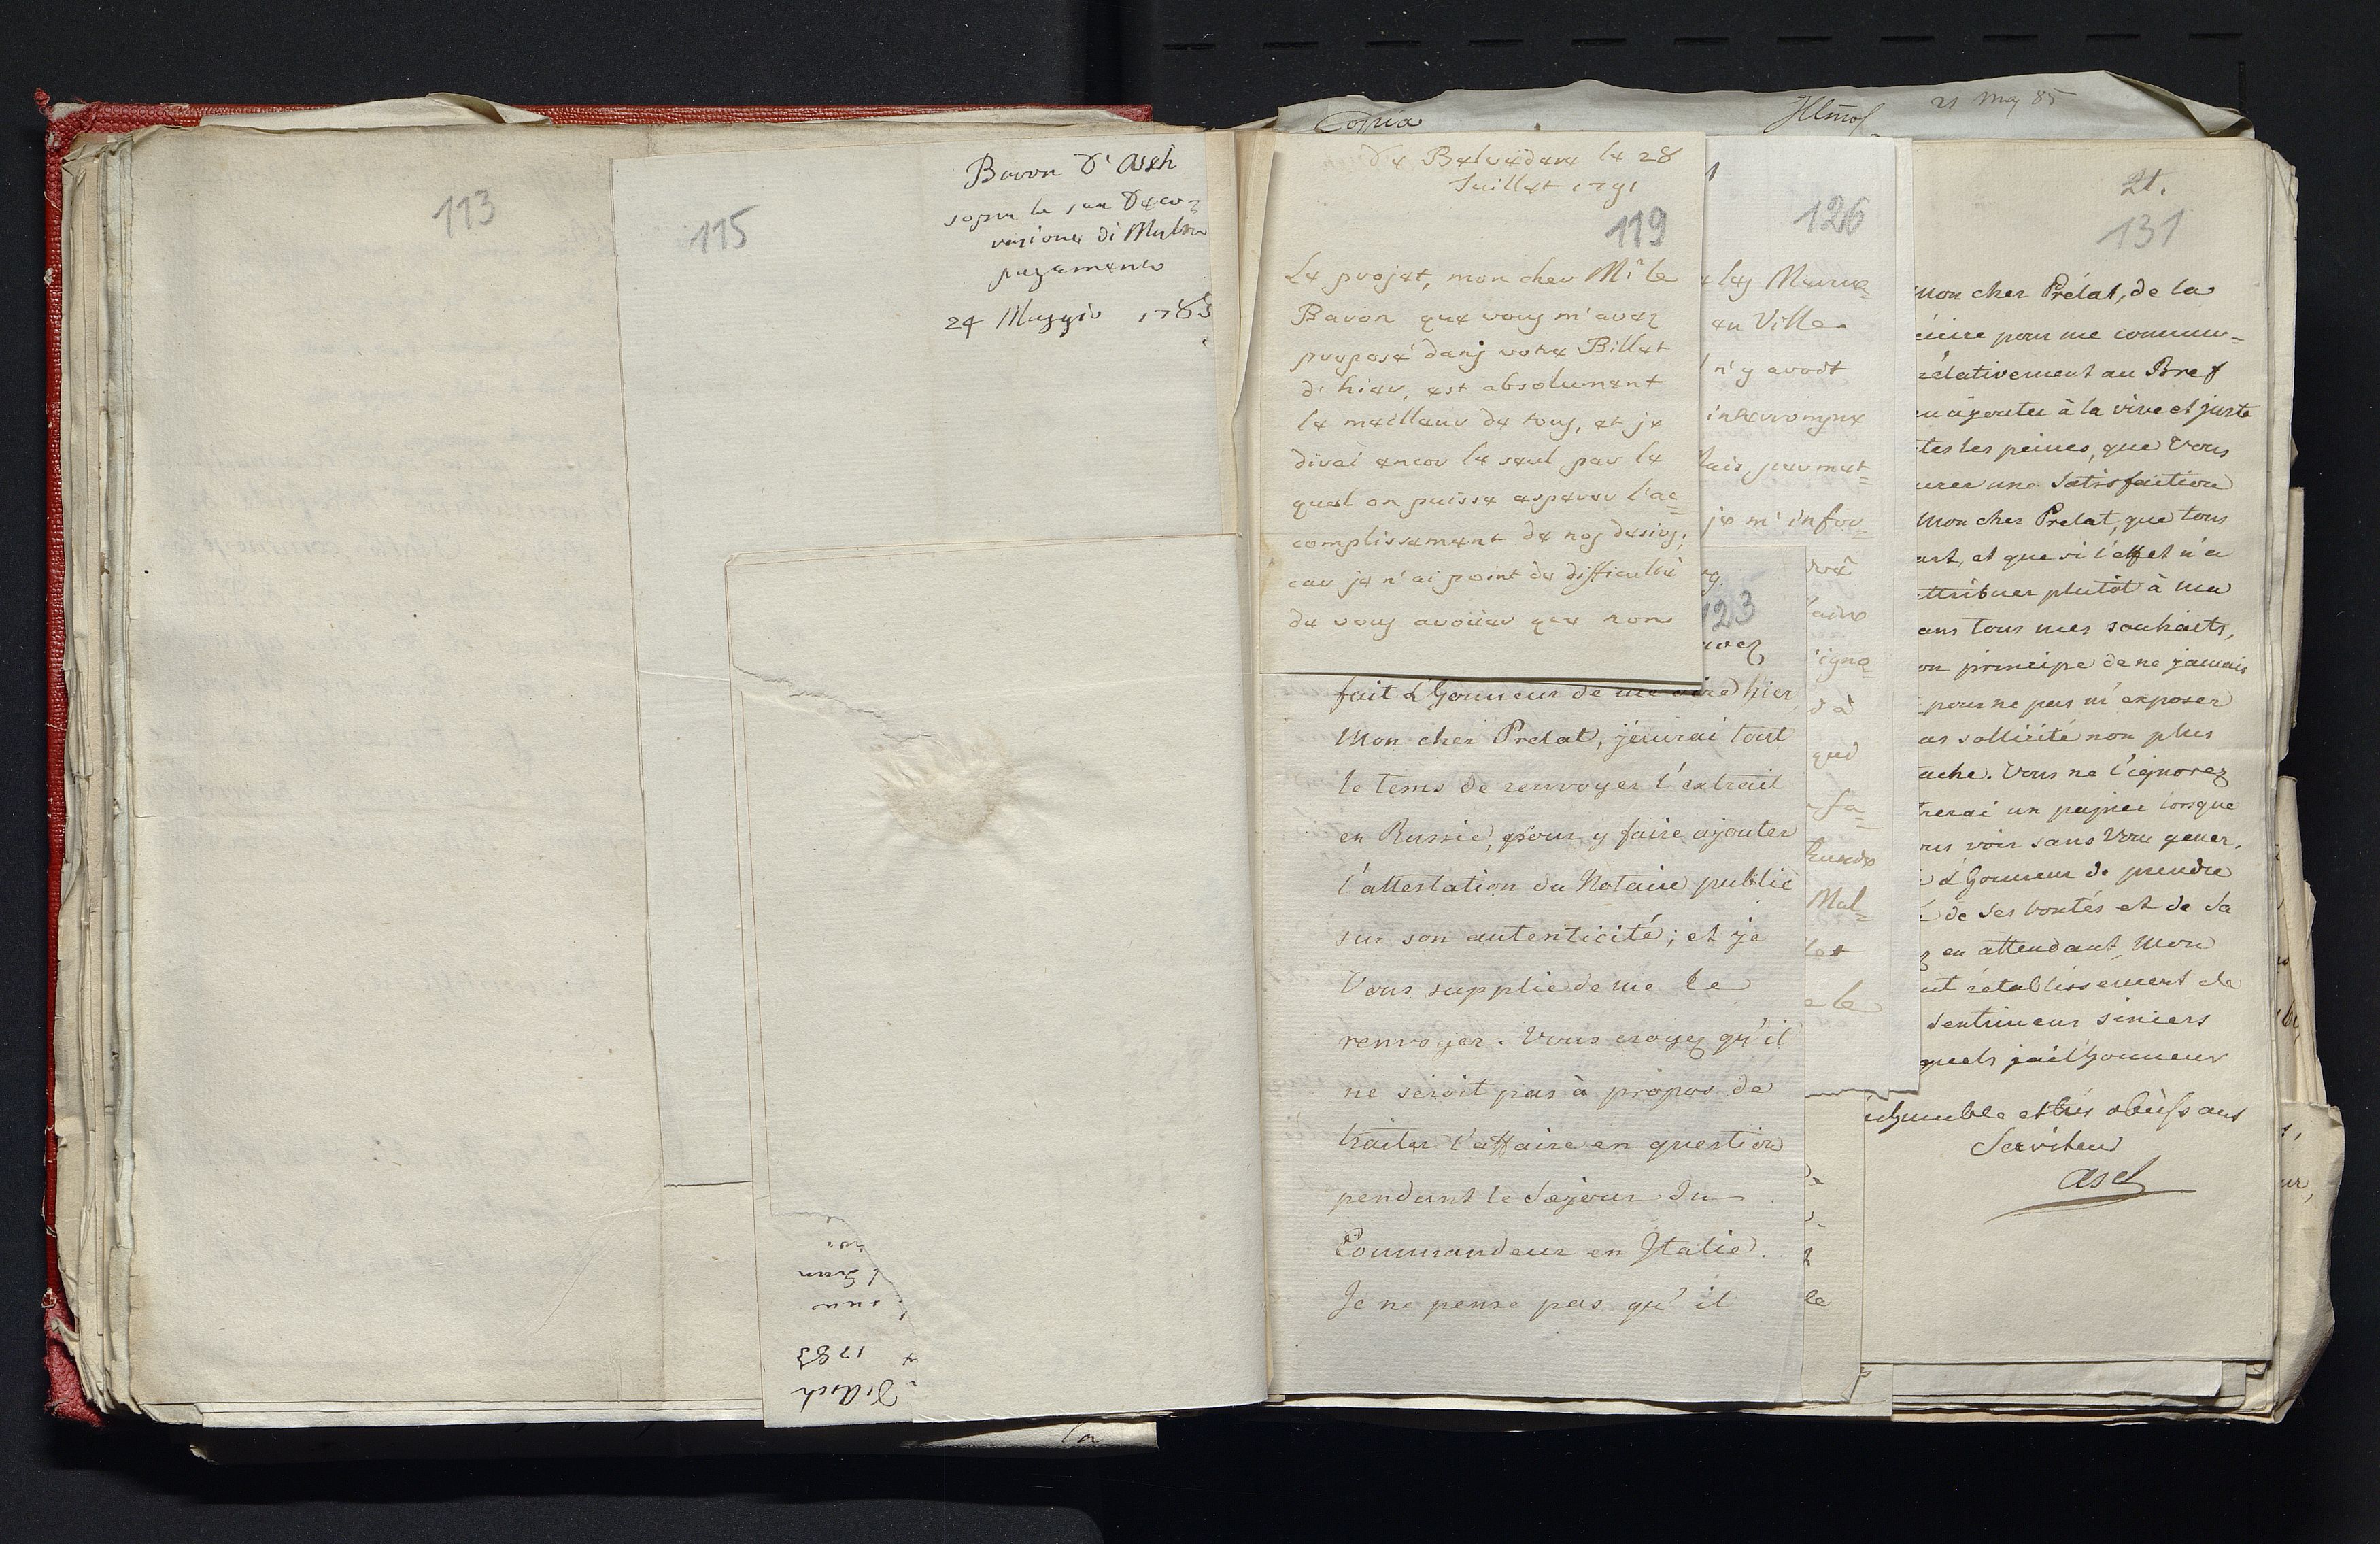 113
115
Baron D'Asch
sopra la sua Deco=
razione di Malta
pagamento
24 Maggio 1785
D'Asch
1783
la
Copia
Illmo
21 Mag 85
De Belvedere le 28
Juillet 1791
119
Le projet, mon cher Mr. le
Baron que vous m'avez
proposé dans votre Billet
d'hier, est absolument
le meilleur de tous, et je
dirai encor le seul par le
quel on puisse esperer l'ac=
complissement de nos desirs;
car je n'ai point de difficulté
de vous avoüer que non
126
en Ville.
n'y avoit
interrompre
permet=
je m'infor=
123
avez
fait l'honneur de me dire hier,
Mon cher Prelat, j'aurai tout
le tems de renvoyer l'extrait
en Russie, pour y faire ajouter
l'attestation du Notaire public
sur son autenticité; et je
Vous supplie de me le
renvoyer. Vous croyez qu'il
ne seroit pas à propos de
traiter l'affaire en question
pendant le Sejour du
Commandeur en Italie.
Je ne pense pas qu'il
d à
que
Mal=
let
e le
le
21.
131
Mon cher Prélat, de la
pour me commu=
rélativement au Bref
ajouter à la vive et juste
tes les peines, que Vous
une Satisfaction
Mon cher Prelat, que tous
art, et que si l'effet n'a
attribuer plutôt à ma
ans tous mes souhaits,
on principe de ne jamais
pour ne pas m'exposer
as sollicité non plus
ache. Vous ne l'ignorez
rerai un papier lorsque
ous voir sans Vous gener.
l'honneur de prendre
de Ses bontés et de Sa
en attendant, Mon
ut rétablissement de
Sentimens sinceres
quels j'ai l'honneur
humble et très obeissant
Serviteur
Asch